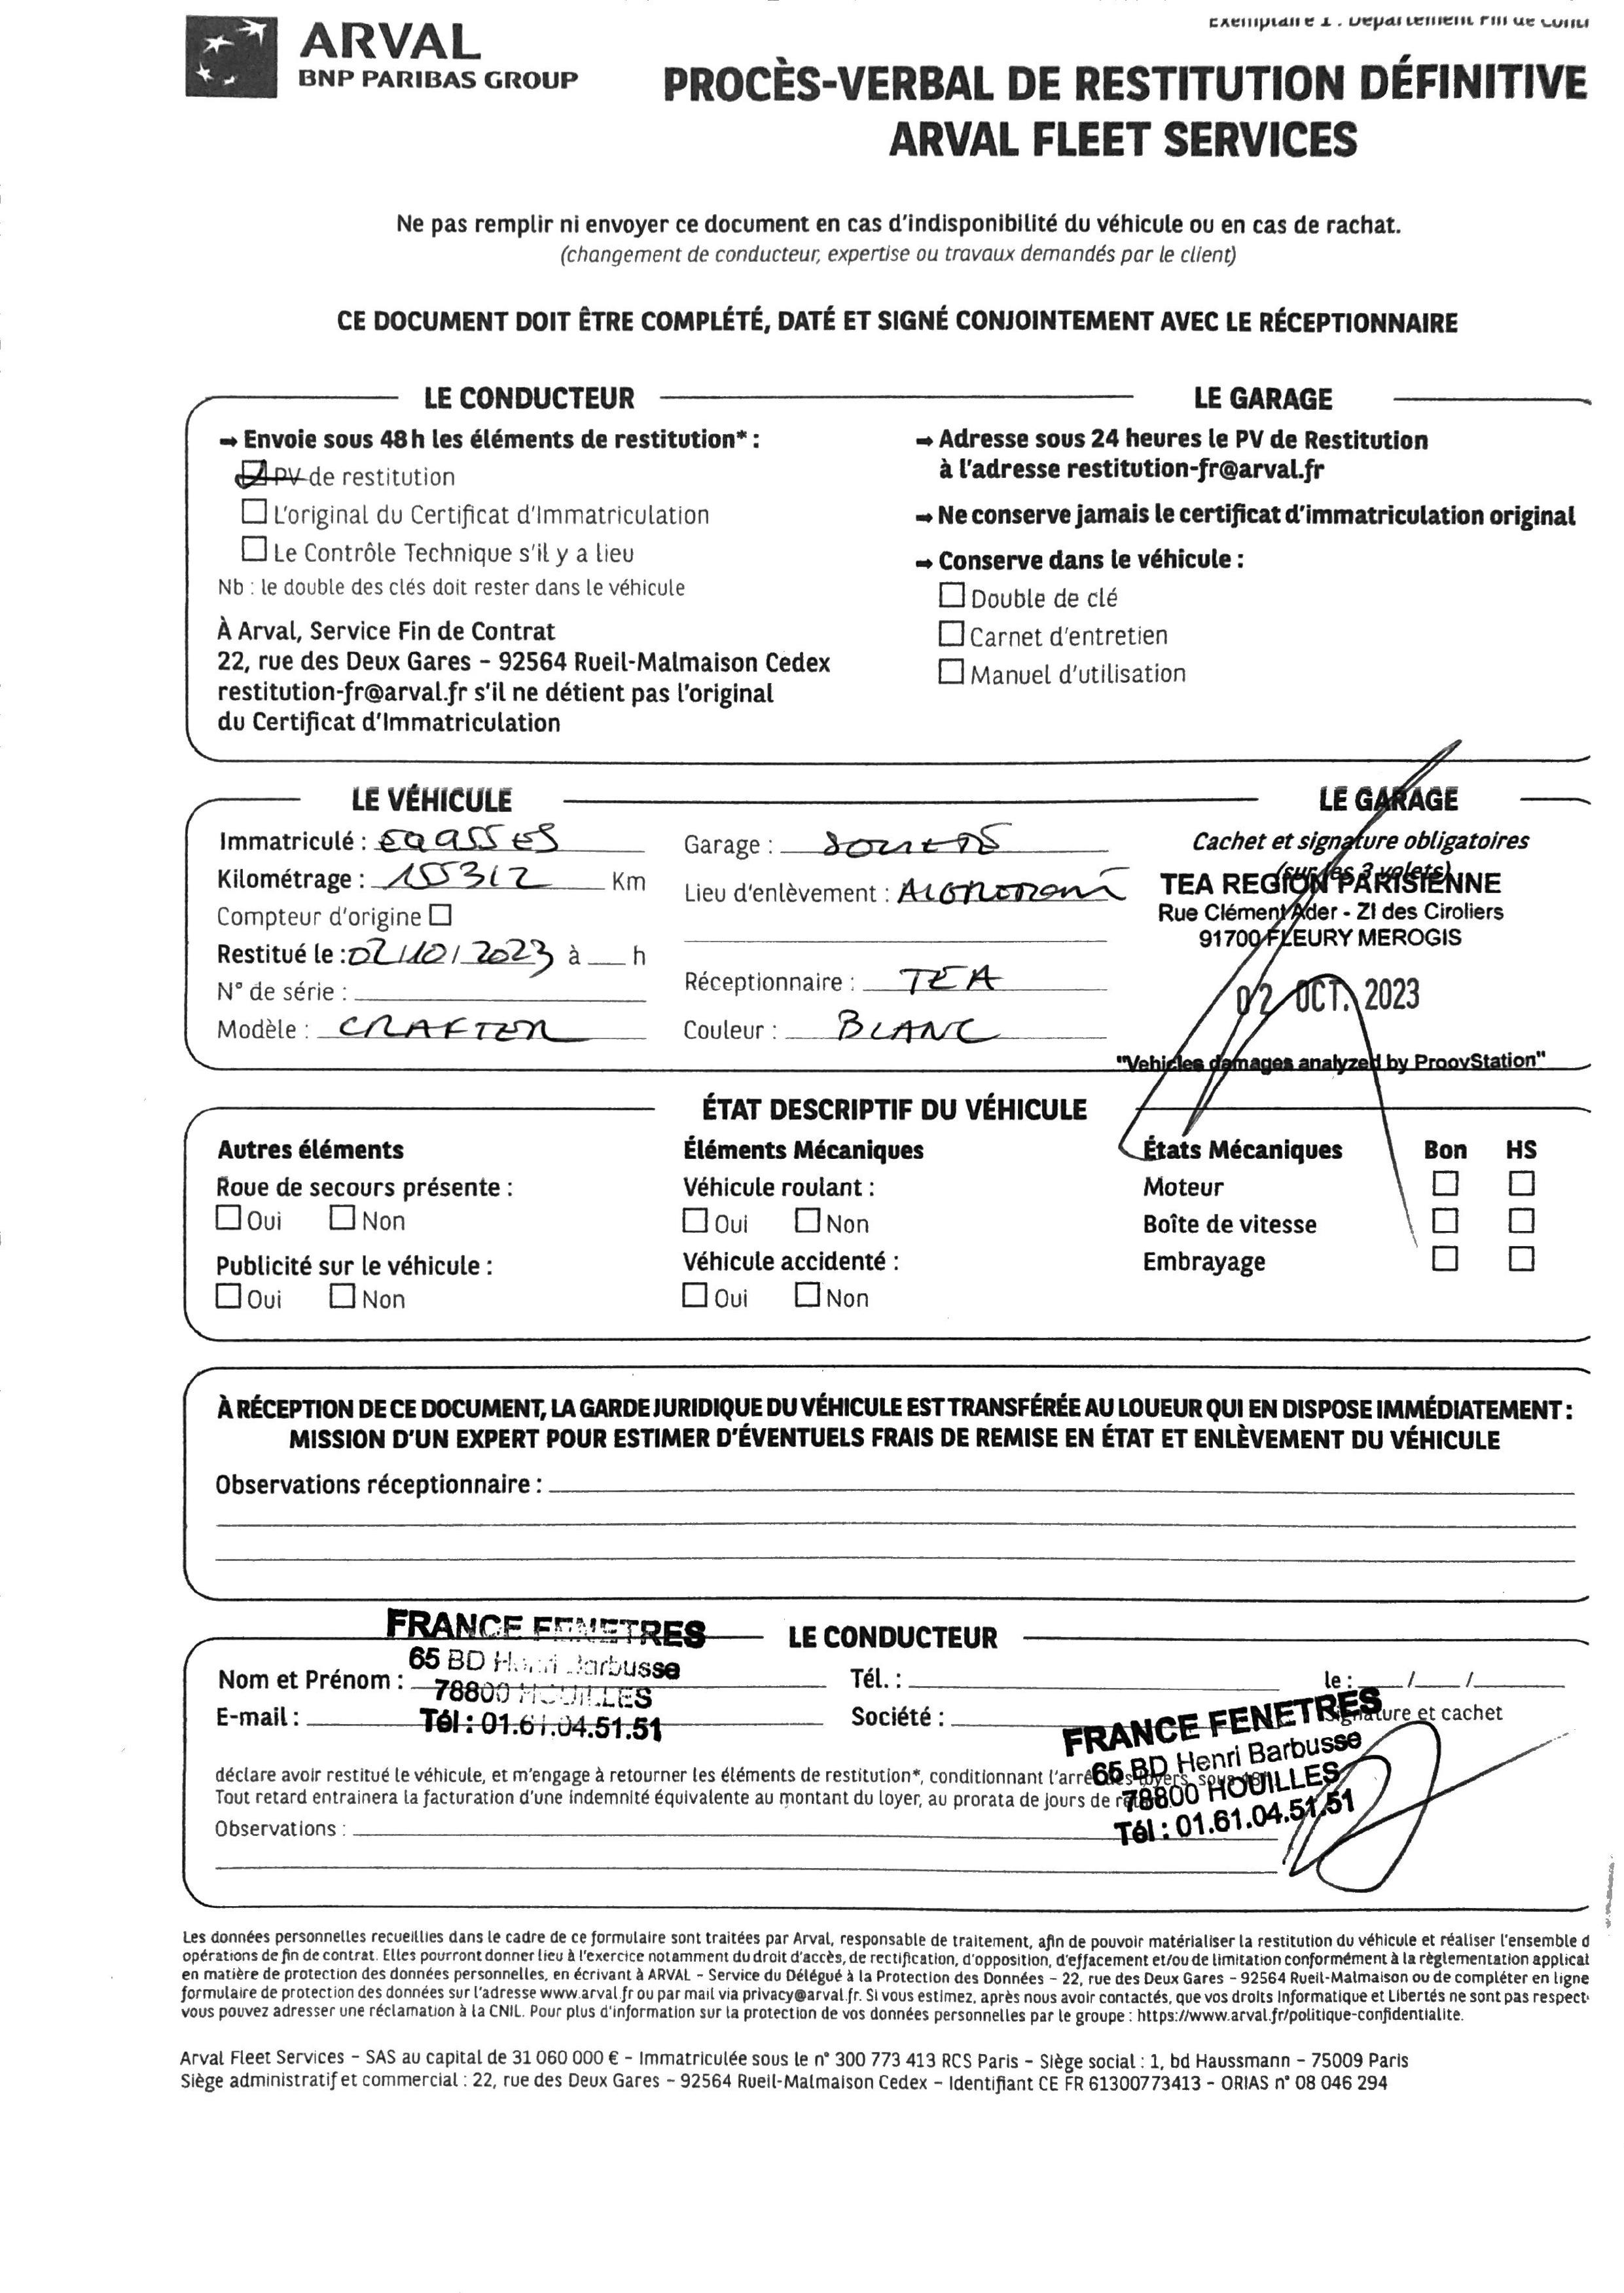 Exemplaire 1 : Département Fin de Contr
ARVAL
BNP PARIBAS GROUP
PROCÈS-VERBAL DE RESTITUTION DÉFINITIVE
ARVAL FLEET SERVICES
Ne pas remplir ni envoyer ce document en cas d'indisponibilité du véhicule ou en cas de rachat.
(changement de conducteur, expertise ou travaux demandés par le client)
CE DOCUMENT DOIT ÊTRE COMPLÉTÉ, DATÉ ET SIGNÉ CONJOINTEMENT AVEC LE RÉCEPTIONNAIRE
LE CONDUCTEUR
→ Envoie sous 48 h les éléments de restitution* :
PV de restitution
L'original du Certificat d'Immatriculation
Le Contrôle Technique s'il y a lieu
Nb : le double des clés doit rester dans le véhicule
À Arval, Service Fin de Contrat
22, rue des Deux Gares – 92564 Rueil-Malmaison Cedex
restitution-fr@arval.fr s'il ne détient pas l'original
du Certificat d'Immatriculation
LE GARAGE
→ Adresse sous 24 heures le PV de Restitution
à l'adresse restitution-fr@arval.fr
→ Ne conserve jamais le certificat d'immatriculation original
→ Conserve dans le véhicule :
Double de clé
Carnet d'entretien
Manuel d'utilisation
LE VÉHICULE
Immatriculé :
Kilométrage : 155312 Km
Compteur d'origine
Restitué le : 02/10/2023 à h
N° de série :
Modèle : CRAFTER
Garage :
Lieu d'enlèvement :
Réceptionnaire : TEA
Couleur : BLANC
LE GARAGE
Cachet et signature obligatoires
(sur les 3 volets)
TEA REGION PARISIENNE
Rue Clément Ader - ZI des Ciroliers
91700 FLEURY MEROGIS
02 OCT. 2023
"Vehicles damages analyzed by ProovStation"
ÉTAT DESCRIPTIF DU VÉHICULE
Autres éléments
Roue de secours présente :
Oui Non
Publicité sur le véhicule :
Oui Non
Éléments Mécaniques
Véhicule roulant :
Oui Non
Véhicule accidenté :
Oui Non
États Mécaniques Bon HS
Moteur
Boîte de vitesse
Embrayage
À RÉCEPTION DE CE DOCUMENT, LA GARDE JURIDIQUE DU VÉHICULE EST TRANSFÉRÉE AU LOUEUR QUI EN DISPOSE IMMÉDIATEMENT :
MISSION D'UN EXPERT POUR ESTIMER D'ÉVENTUELS FRAIS DE REMISE EN ÉTAT ET ENLÈVEMENT DU VÉHICULE
Observations réceptionnaire :
LE CONDUCTEUR
FRANCE FENETRES
65 BD Henri Barbusse
78800 HOUILLES
Tél : 01.61.04.51.51
Nom et Prénom :
E-mail :
Tél. :
Société :
le : / /
Signature et cachet
FRANCE FENETRES
65 BD Henri Barbusse
78800 HOUILLES
Tél : 01.61.04.51.51
déclare avoir restitué le véhicule, et m'engage à retourner les éléments de restitution*, conditionnant l'arrêt des loyers, sous 48h.
Tout retard entrainera la facturation d'une indemnité équivalente au montant du loyer, au prorata de jours de retard.
Observations :
Les données personnelles recueillies dans le cadre de ce formulaire sont traitées par Arval, responsable de traitement, afin de pouvoir matérialiser la restitution du véhicule et réaliser l'ensemble d
opérations de fin de contrat. Elles pourront donner lieu à l'exercice notamment du droit d'accès, de rectification, d'opposition, d'effacement et/ou de limitation conformément à la règlementation applicat
en matière de protection des données personnelles, en écrivant à ARVAL – Service du Délégué à la Protection des Données – 22, rue des Deux Gares – 92564 Rueil-Malmaison ou de compléter en ligne
formulaire de protection des données sur l'adresse www.arval.fr ou par mail via privacy@arval.fr. Si vous estimez, après nous avoir contactés, que vos droits Informatique et Libertés ne sont pas respect
vous pouvez adresser une réclamation à la CNIL. Pour plus d'information sur la protection de vos données personnelles par le groupe : https://www.arval.fr/politique-confidentialite.
Arval Fleet Services – SAS au capital de 31 060 000 € – Immatriculée sous le n° 300 773 413 RCS Paris – Siège social : 1, bd Haussmann – 75009 Paris
Siège administratif et commercial : 22, rue des Deux Gares – 92564 Rueil-Malmaison Cedex – Identifiant CE FR 61300773413 – ORIAS n° 08 046 294